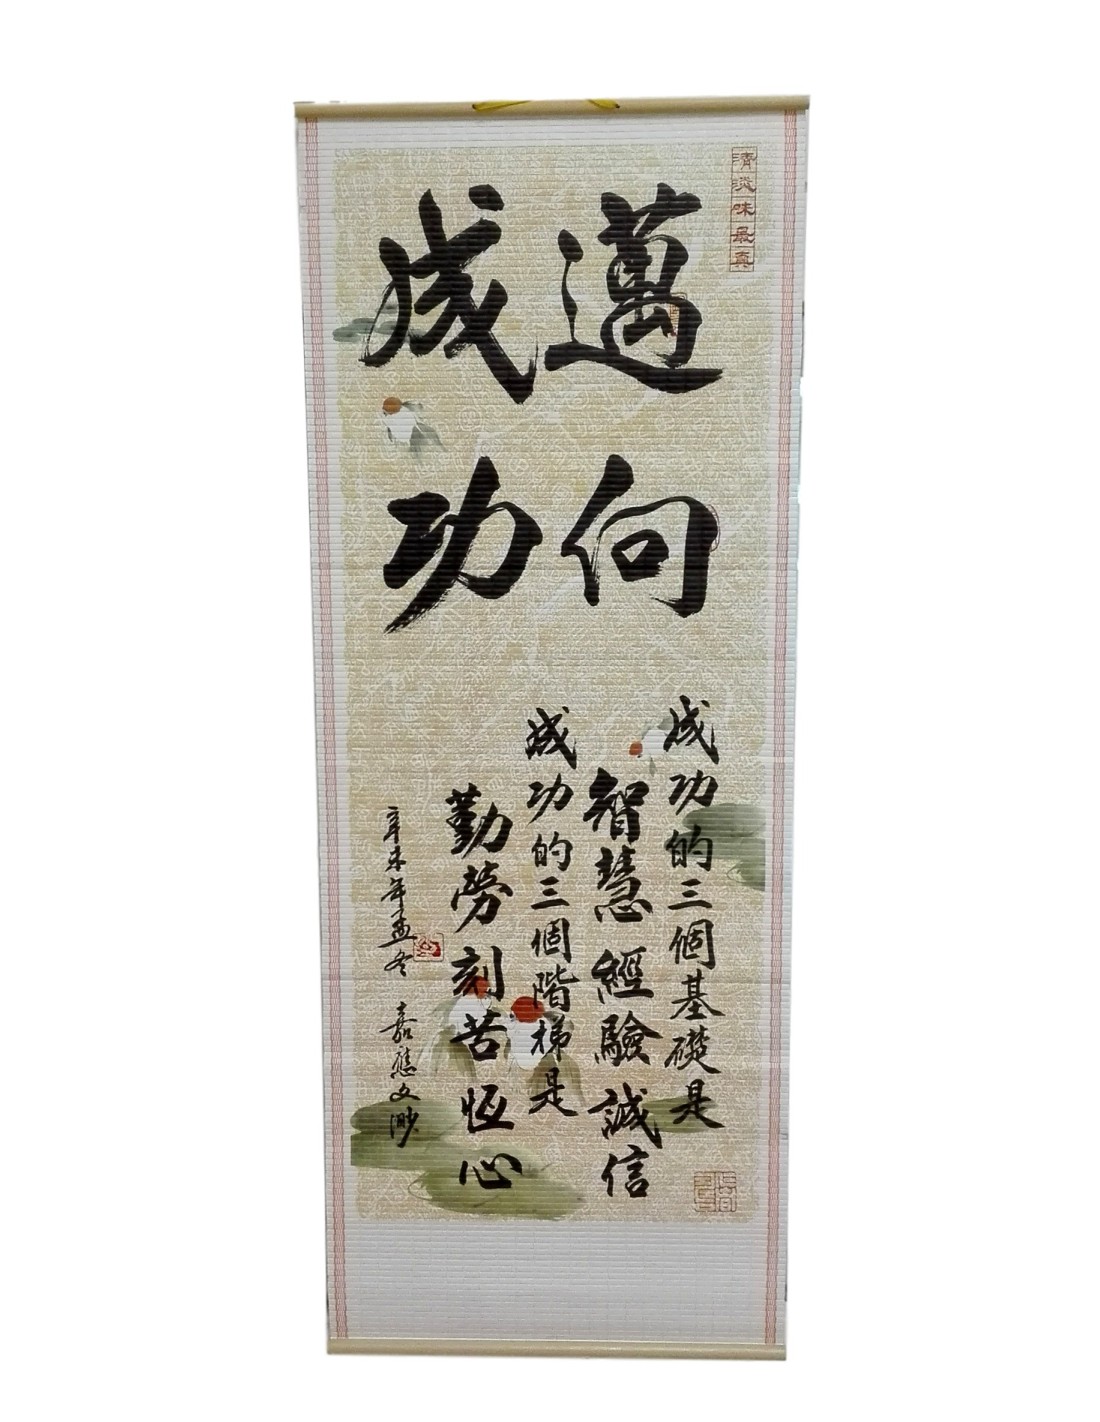 清淡味最真
邁向
成功
成功的三個基礎是
智慧經驗誠信
成功的三個階梯是
勤勞刻苦恆心
辛未年孟冬 嘉應文渺